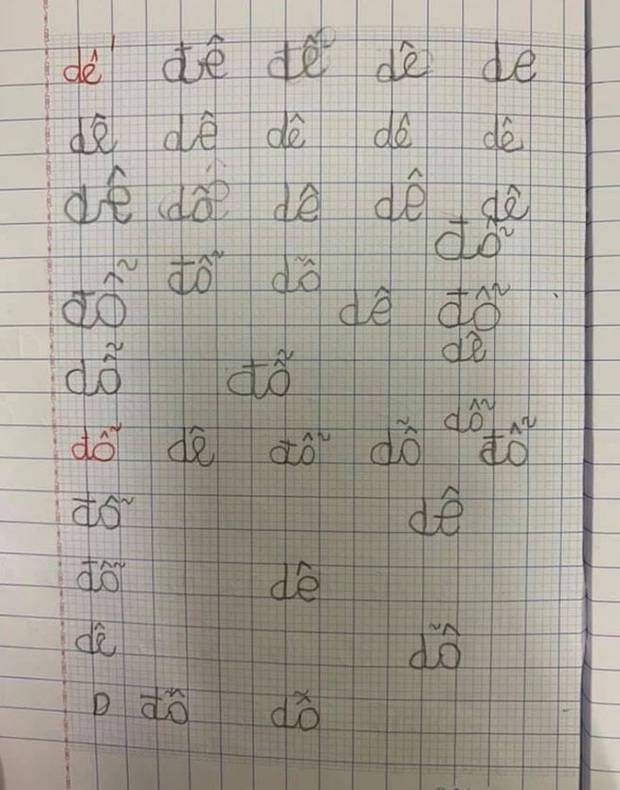 dê đê dễ dê de
dê dê dê dê dê
dê dỗ dê dê dê
đỗ
đỗ đỗ dỗ
dê đỗ
dê
dỗ đỗ
dỗ
đỗ dê đỗ dỗ đỗ
đỗ dê
đỗ dê
dê dỗ
D đỗ dỗ